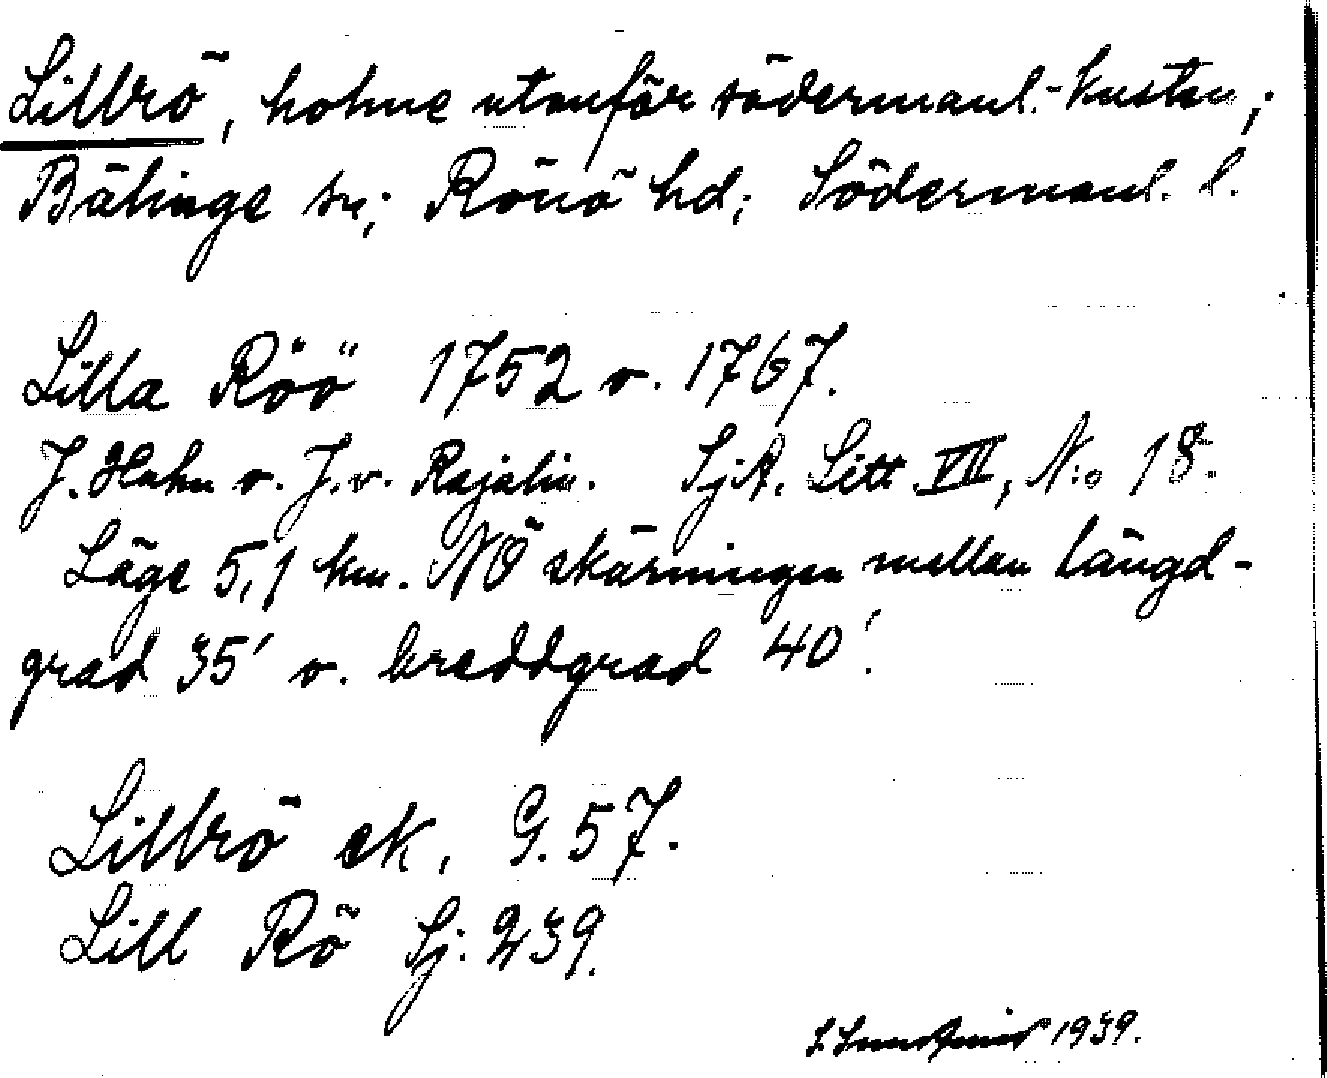 Lillrö, holme utanför södermanl.-kusten;
Bälinge sn; Rönö hd; Södermanl. l.
Lilla Röö 1752 o. 1767.
J. Hahn o. J. v. Rajalin. SjA. Litt VII, N:o 18.
Läge 5,1 km. NÖ skärningen mellan längd-
grad 35' o. breddgrad 40'.
Lillrö sk, G. 57.
Lill Rö Sj. 239.
1939.